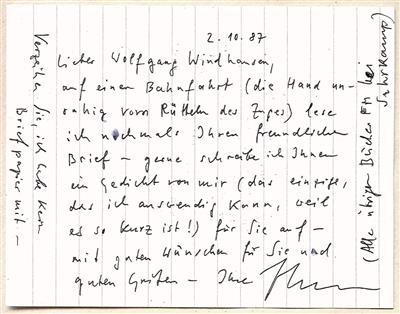 2.10.87
Lieber Wolfgang Windhausen,
auf einer Bahnfahrt (die Hand un-
ruhig vom Rütteln des Zuges) lese
ich nochmals Ihren freundlichen
Brief – gerne schreibe ich Ihnen
ein Gedicht von mir (das einzige,
das ich auswendig kann, weil
es so kurz ist!) für Sie auf –
mit guten Wünschen für Sie und
guten Grüßen – Ihre
Verzeihen Sie, ich habe kein
Briefpapier mit –
(Alle übrigen Bücher bei
Suhrkamp)